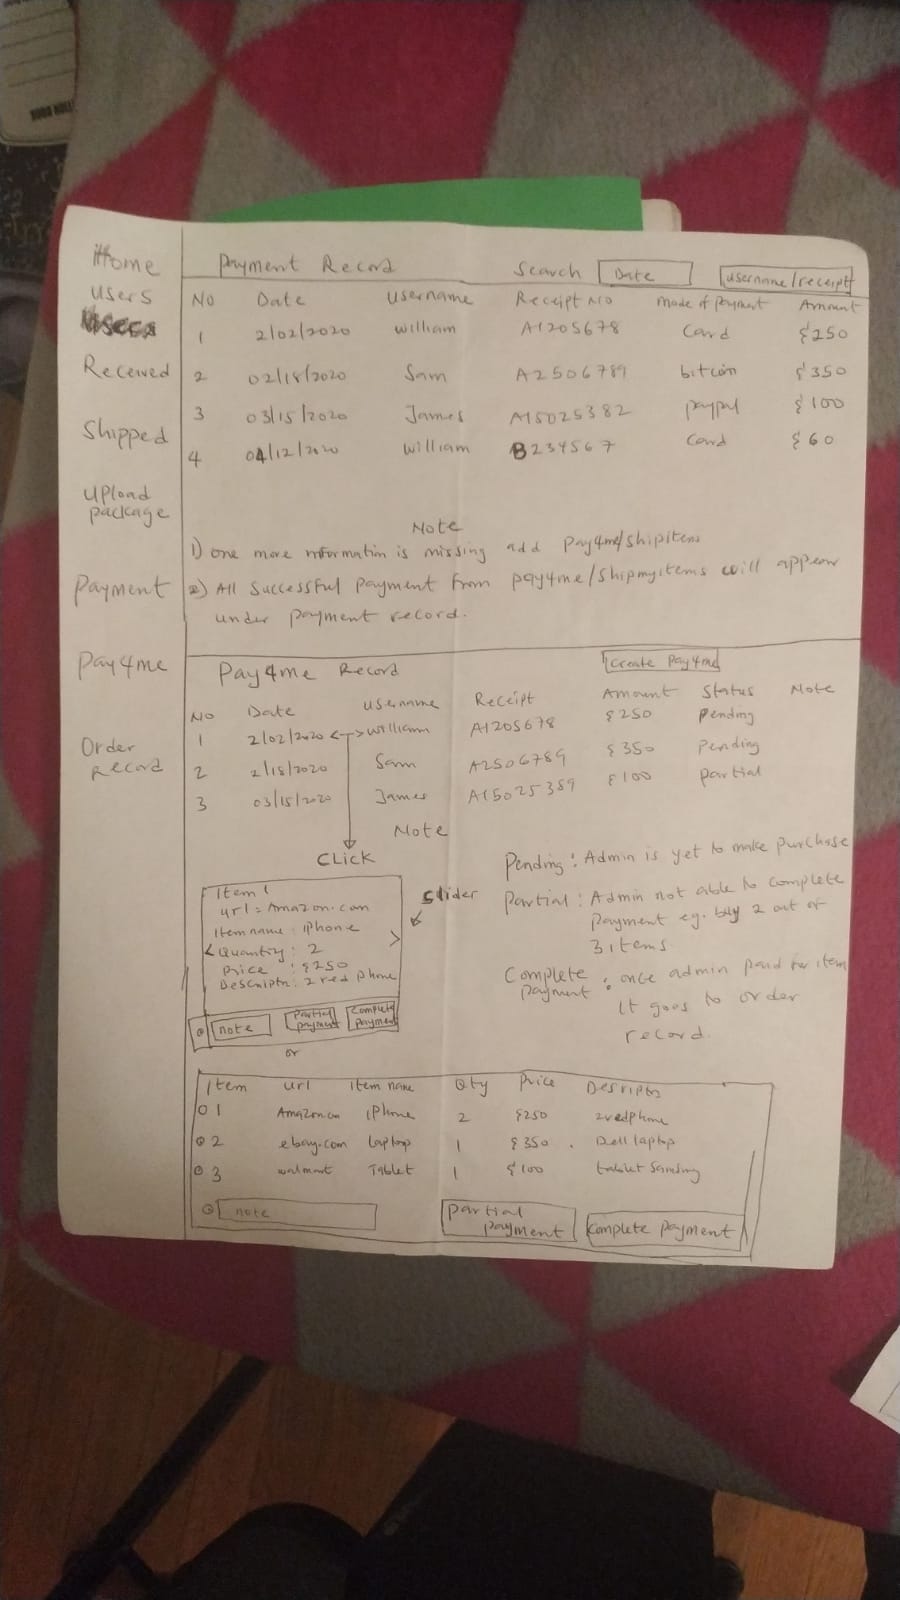 Home
Users
Received
Shipped
Upload
package
Payment
Pay4me
Order
Record
Payment Record Search Date username/receipt
No Date Username Receipt No mode of payment Amount
1 2/02/2020 william A1205678 Card $250
2 02/18/2020 Sam A2506789 bitcoin $350
3 03/15/2020 James A15025382 paypal $100
4 04/12/2020 william B234567 Card $60
Note
1) One more information is missing add Pay4me/shipitems
2) All Successful payment from pay4me/shipmyitems will appear
under payment record.
Pay4me Record Create Pay4me
No Date Username Receipt Amount Status Note
1 2/02/2020 <-> william A1205678 $250 Pending
2 2/18/2020 Sam A2506789 $350 Pending
3 03/15/2020 James A15025389 $100 partial
Note
CLICK
Item 1
url = Amazon.com
Item name : iphone
< Quantity : 2 >
Price : $250
Descriptn: 2 red phone
note Partial payment Complete payment
Slider
or
Pending : Admin is yet to make purchase
Partial : Admin not able to complete
payment eg. buy 2 out of
3 items.
Complete payment : once admin paid for item
It goes to order
record.
Item url Item name Qty Price Descriptn
1 Amazon.com iphone 2 $250 2 red phone
2 ebay.com Laptop 1 $350 . Dell laptop
3 walmart Tablet 1 $100 tablet
note Partial payment Complete payment